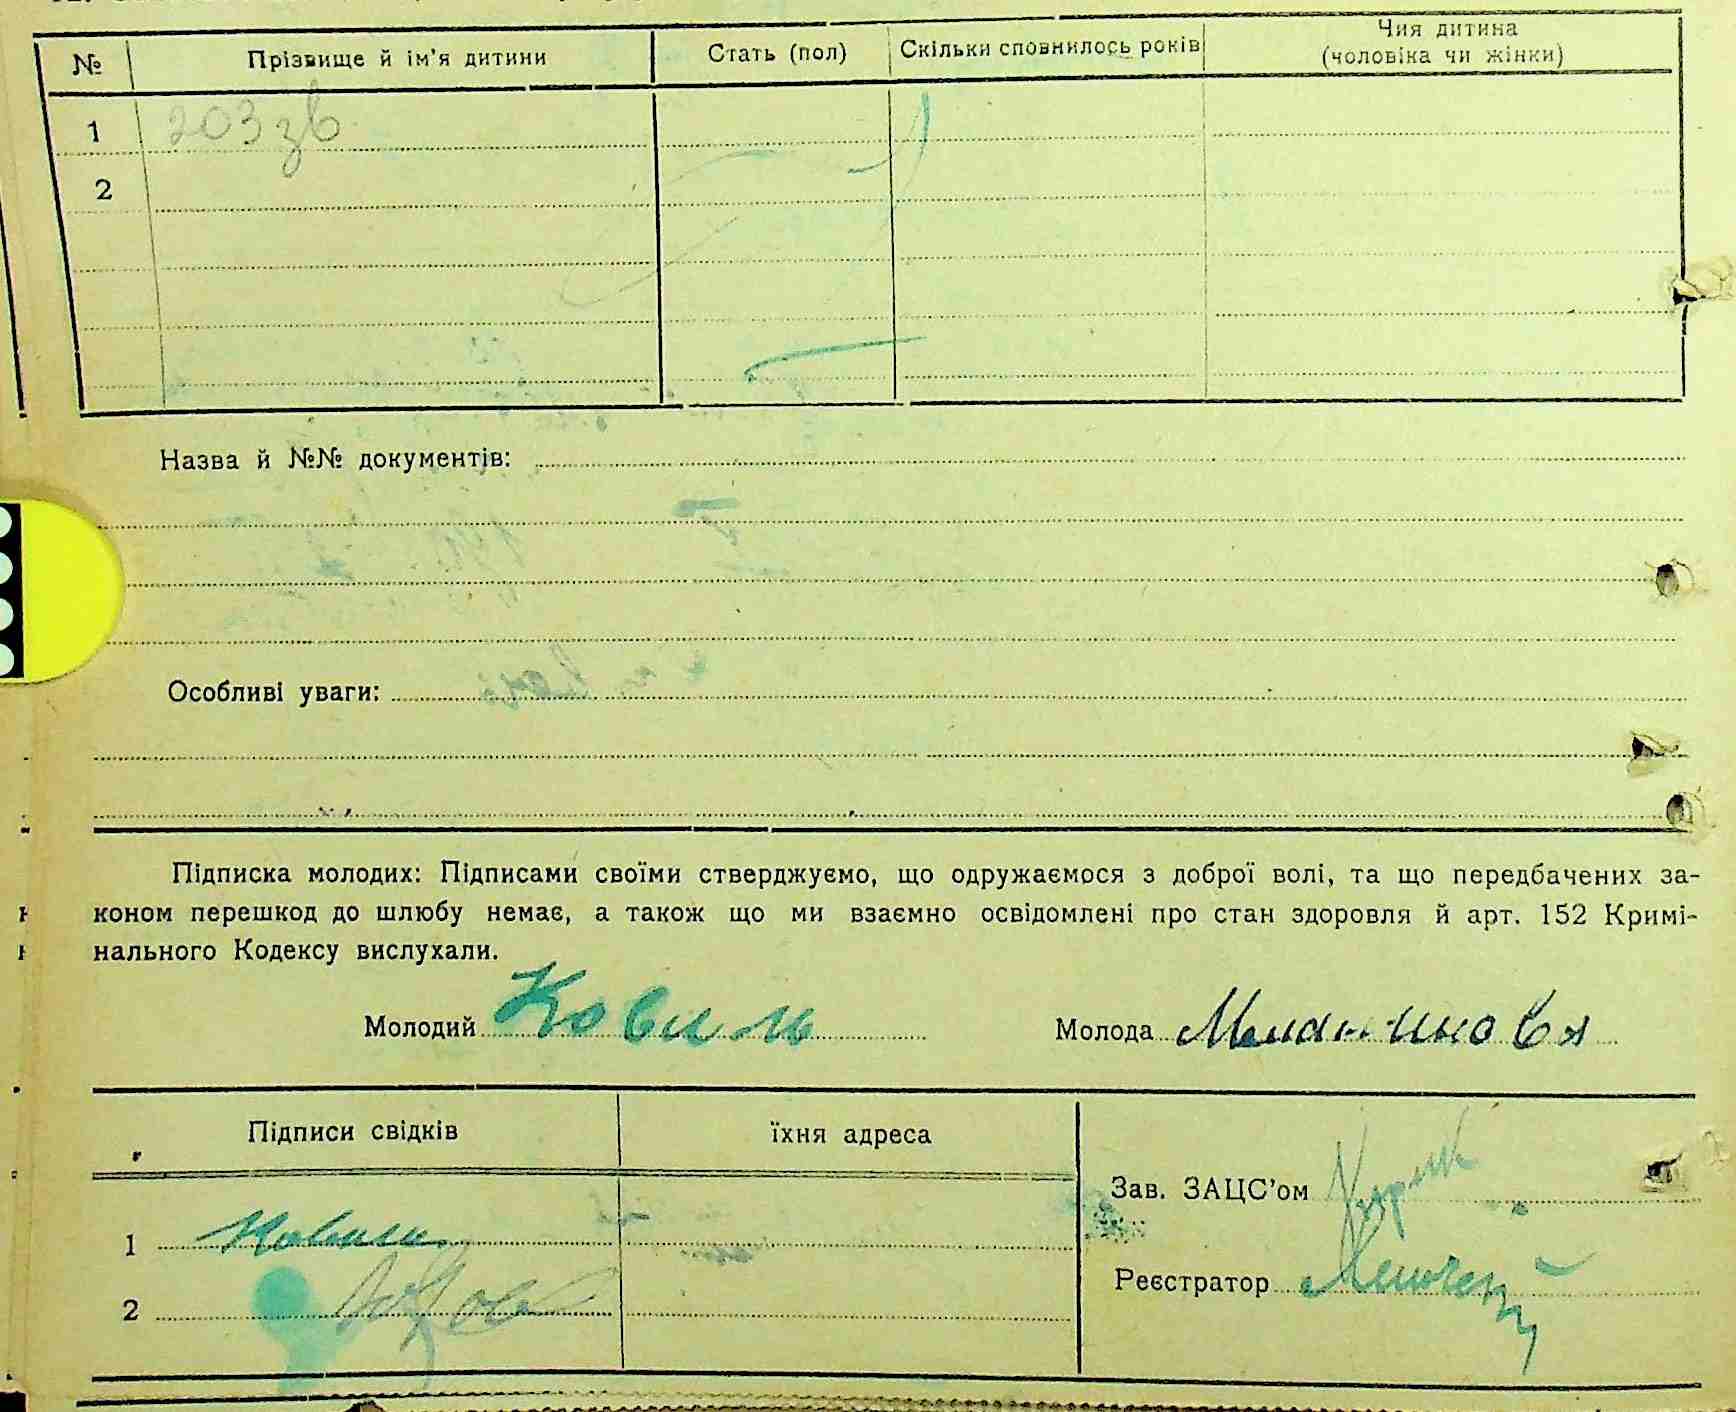 № Прізвище й ім'я дитини Стать (пол) Скільки сповнилось років Чия дитина (чоловіка чи жінки)
1 203 зв
2
Назва й №№ документів:
Особливі уваги:
Підписка молодих: Підписами своїми стверджуємо, що одружаємося з доброї волі, та що передбачених за-
коном перешкод до шлюбу немає, а також що ми взаємно освідомлені про стан здоровля й арт. 152 Кримі-
нального Кодексу вислухали.
Молодий Ковиль Молода
Підписи свідків їхня адреса
Зав. ЗАЦС'ом
1
Реєстратор
2